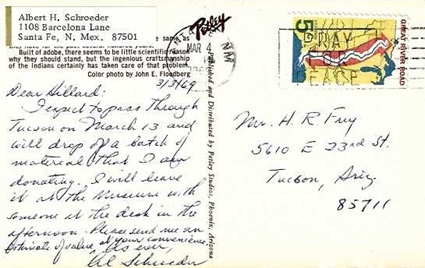 Albert H. Schroeder
1108 Barcelona Lane
Santa Fe, N. Mex., 87501
Built of adobe, there seems to be little scientific reason
why they should stand, but the ingenious craftsmanship
of the Indians certainly has taken care of that problem.
Color photo by John E. Flodberg
3/3/69
Dear Hillard:
I expect to pass through
Tucson on March 13 and
will drop of a batch of
material that I am
donating. I will leave
it at the Museum with
someone at the desk in the
afternoon. Please send me an
estimate of value, at your convenience.
As ever,
Al Schroeder
Petley
and Distributed by Petley Studios, Phoenix, Arizona
MAR
4
NM
PRAY
PEACE
5¢
GREAT RIVER ROAD
Mr. H. R. Frey
5610 E 23rd St.
Tucson, Ariz.
85711